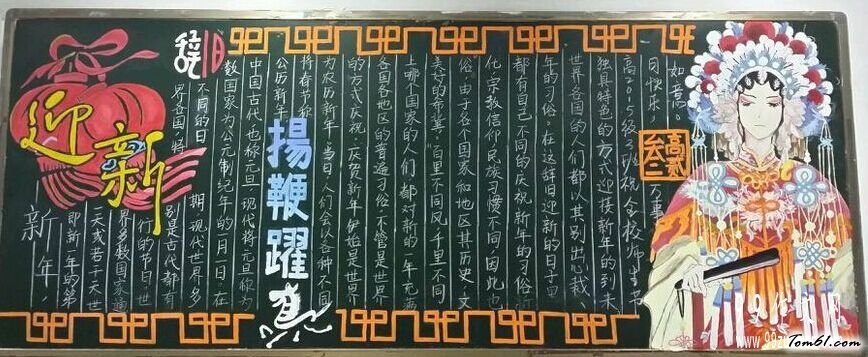 辞旧
迎新
揚鞭躍
新年,
即新一年的第
一天或若干天世
界多数国家通
行的节日世
界各国,特
别是古代都有
不同的日期.现代世界多
数国家为公元制纪年的一月一日.在
中国古代也称元旦.现代将元旦称为
公历新年,
将春节称
为农历新年.当日人们会以各种不同
的方式庆祝.庆贺新年伊始是世界
各国各地区的普遍习俗.不管是世界
上哪个国家的人们都对新的一年充满
美好的希冀."百里不同风,千里不同
俗"由于各个国家和地区其历史.文
化.宗教信仰.民族习惯不同,因此也
都有自己不同的庆祝新年的习俗
年的习俗.在这辞旧迎新的日子里
世界各国的人们都以其别出心裁、
独具特色的方式迎接新年的到来
高2015级2班祝全校师生节
日快乐,万事
如意.
Tom61.com